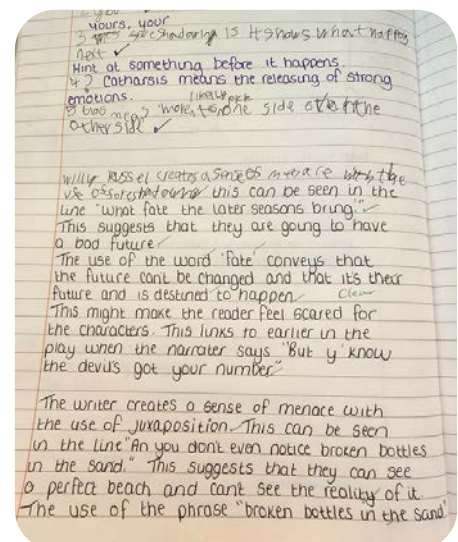 yours, your
3 foreshadowing is it shows what happens
next ✓
Hint at something before it happens.
4) Catharsis means the releasing of strong
emotions.
5 bias means more to one side over the
other side ✓
Willy Russel creates a sense of menace with the
use of foreshadowing this can be seen in the
line "What fate the later seasons bring." ✓
This suggests that they are going to have
a bad future
The use of the word 'fate' conveys that
the future can't be changed and that it's their
future and is destined to happen Clear
This might make the reader feel scared for
the characters. This links to earlier in the
play when the narrater says "But y'know
the devil's got your number"
The writer creates a sense of menace with
the use of juxaposition. This can be seen
in the line "An you don't even notice broken bottles
in the sand." This suggests that they can see
a perfect beach and cant see the reality of it.
The use of the phrase "broken bottles in the sand"